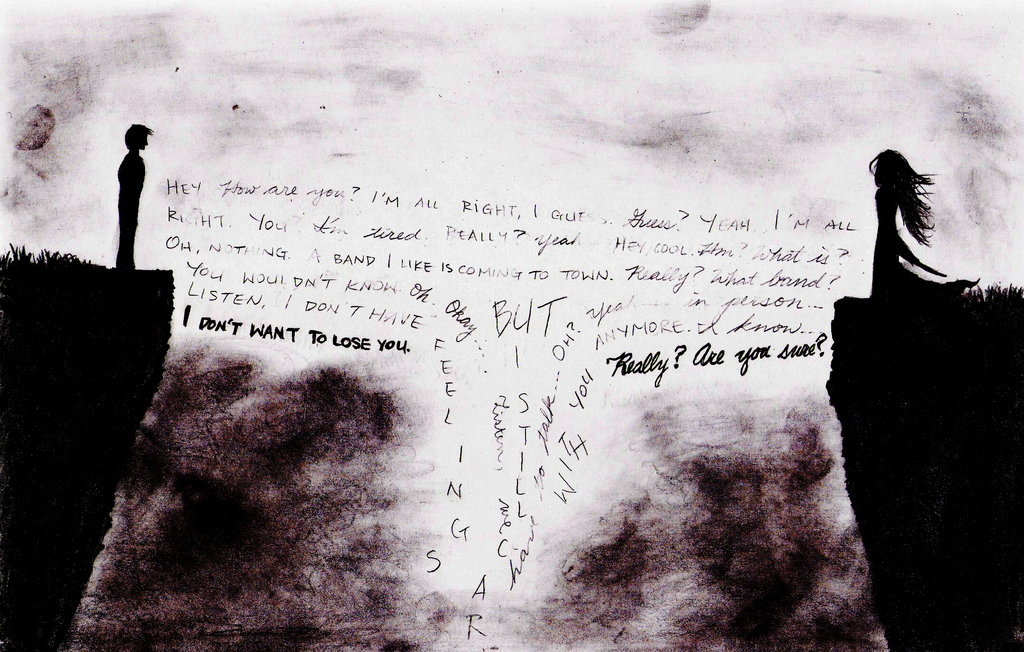 HEY How are you? I'M ALL RIGHT, I GUESS. Guess? YEAH, I'M ALL
RIGHT. YOU? I'm tired. REALLY? yeah HEY, COOL. Hm? What is?
OH, NOTHING. A BAND I LIKE IS COMING TO TOWN. Really? What band?
YOU WOULDN'T KNOW. Oh. Okay... BUT yeah in person...
LISTEN, I DON'T HAVE ANYMORE. I know...
I DON'T WANT TO LOSE YOU. Really? Are you sure?
FEELINGS
I STILL CAR
Listen, we
have to talk... OH?
WITH YOU